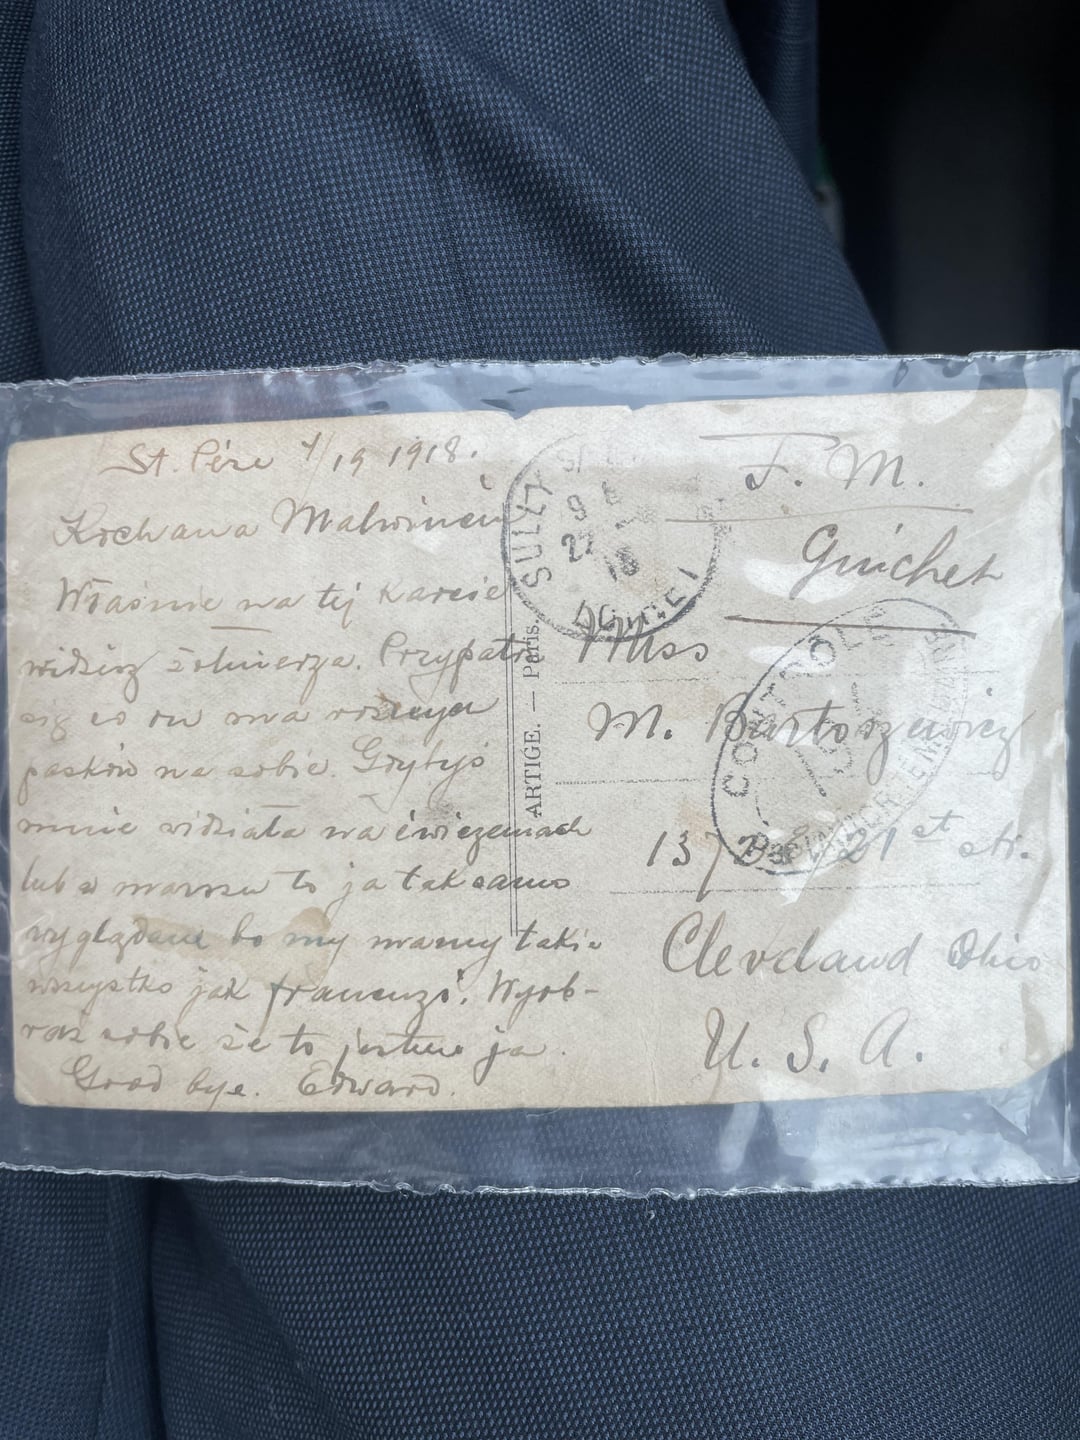 St. Pére 4/19 1918.
Kochana
Właśnie na tej karcie
widzisz żołnierza. Przypatrz
się co on ma
pasków na sobie. Gdybyś
mnie widziała na ćwiczeniach
lub w marszu to ja tak samo
wyglądam bo my mamy takie
wszystko jak francuzi. Wyob-
raź sobie że to jestem ja.
Good bye. Edward.
SULLY
9
22
18
LOIRET
ARTIGE. — Paris.
F. M.
Guichet
Miss
M. Bartoszewicz
CONTROLE
21st str.
Cleveland Ohio
U. S. A.